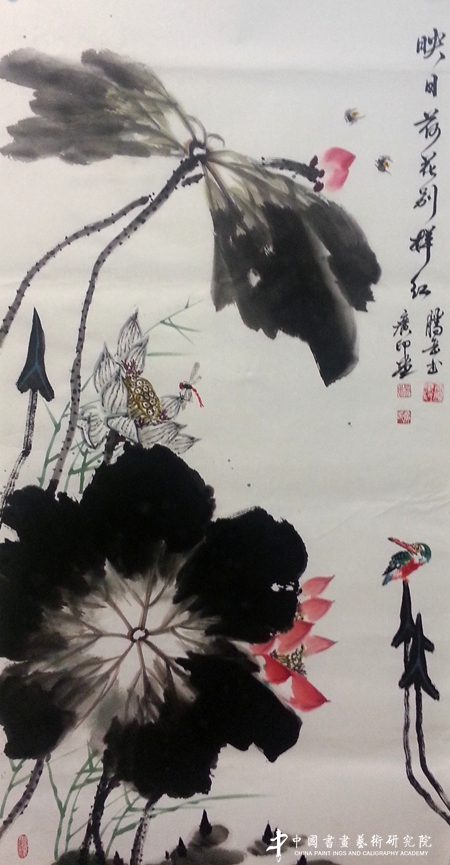 映日荷花别样红
廣印
中國書畫藝術研究院
CHINA PAINT INGS AND CALIGRAPHY ACADEMY